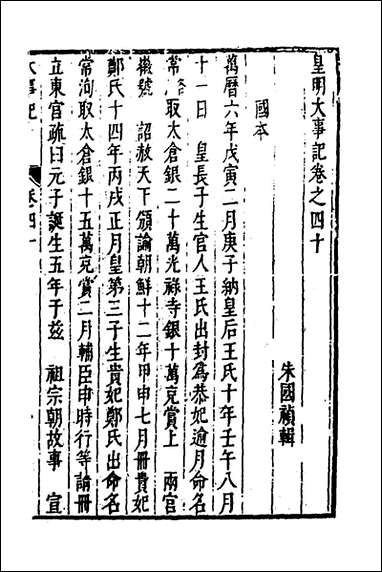 皇明大事記卷之四十
朱國禎輯
國本
萬曆六年戊寅二月庚子納皇后王氏十年壬午八月
十一日 皇長子生宮人王氏出封為恭妃逾月命名
常洛取太倉銀二十萬光祿寺銀十萬充賞上 兩宮
徽號 詔赦天下頒諭朝鮮十二年甲申七月冊貴妃
鄭氏十四年丙戌正月皇第三子生貴妃鄭氏出命名
常洵取太倉銀十五萬充賞二月輔臣申時行等請冊
立東宮疏曰元子誕生五年于茲 祖宗朝故事 宣
大事記 卷四十